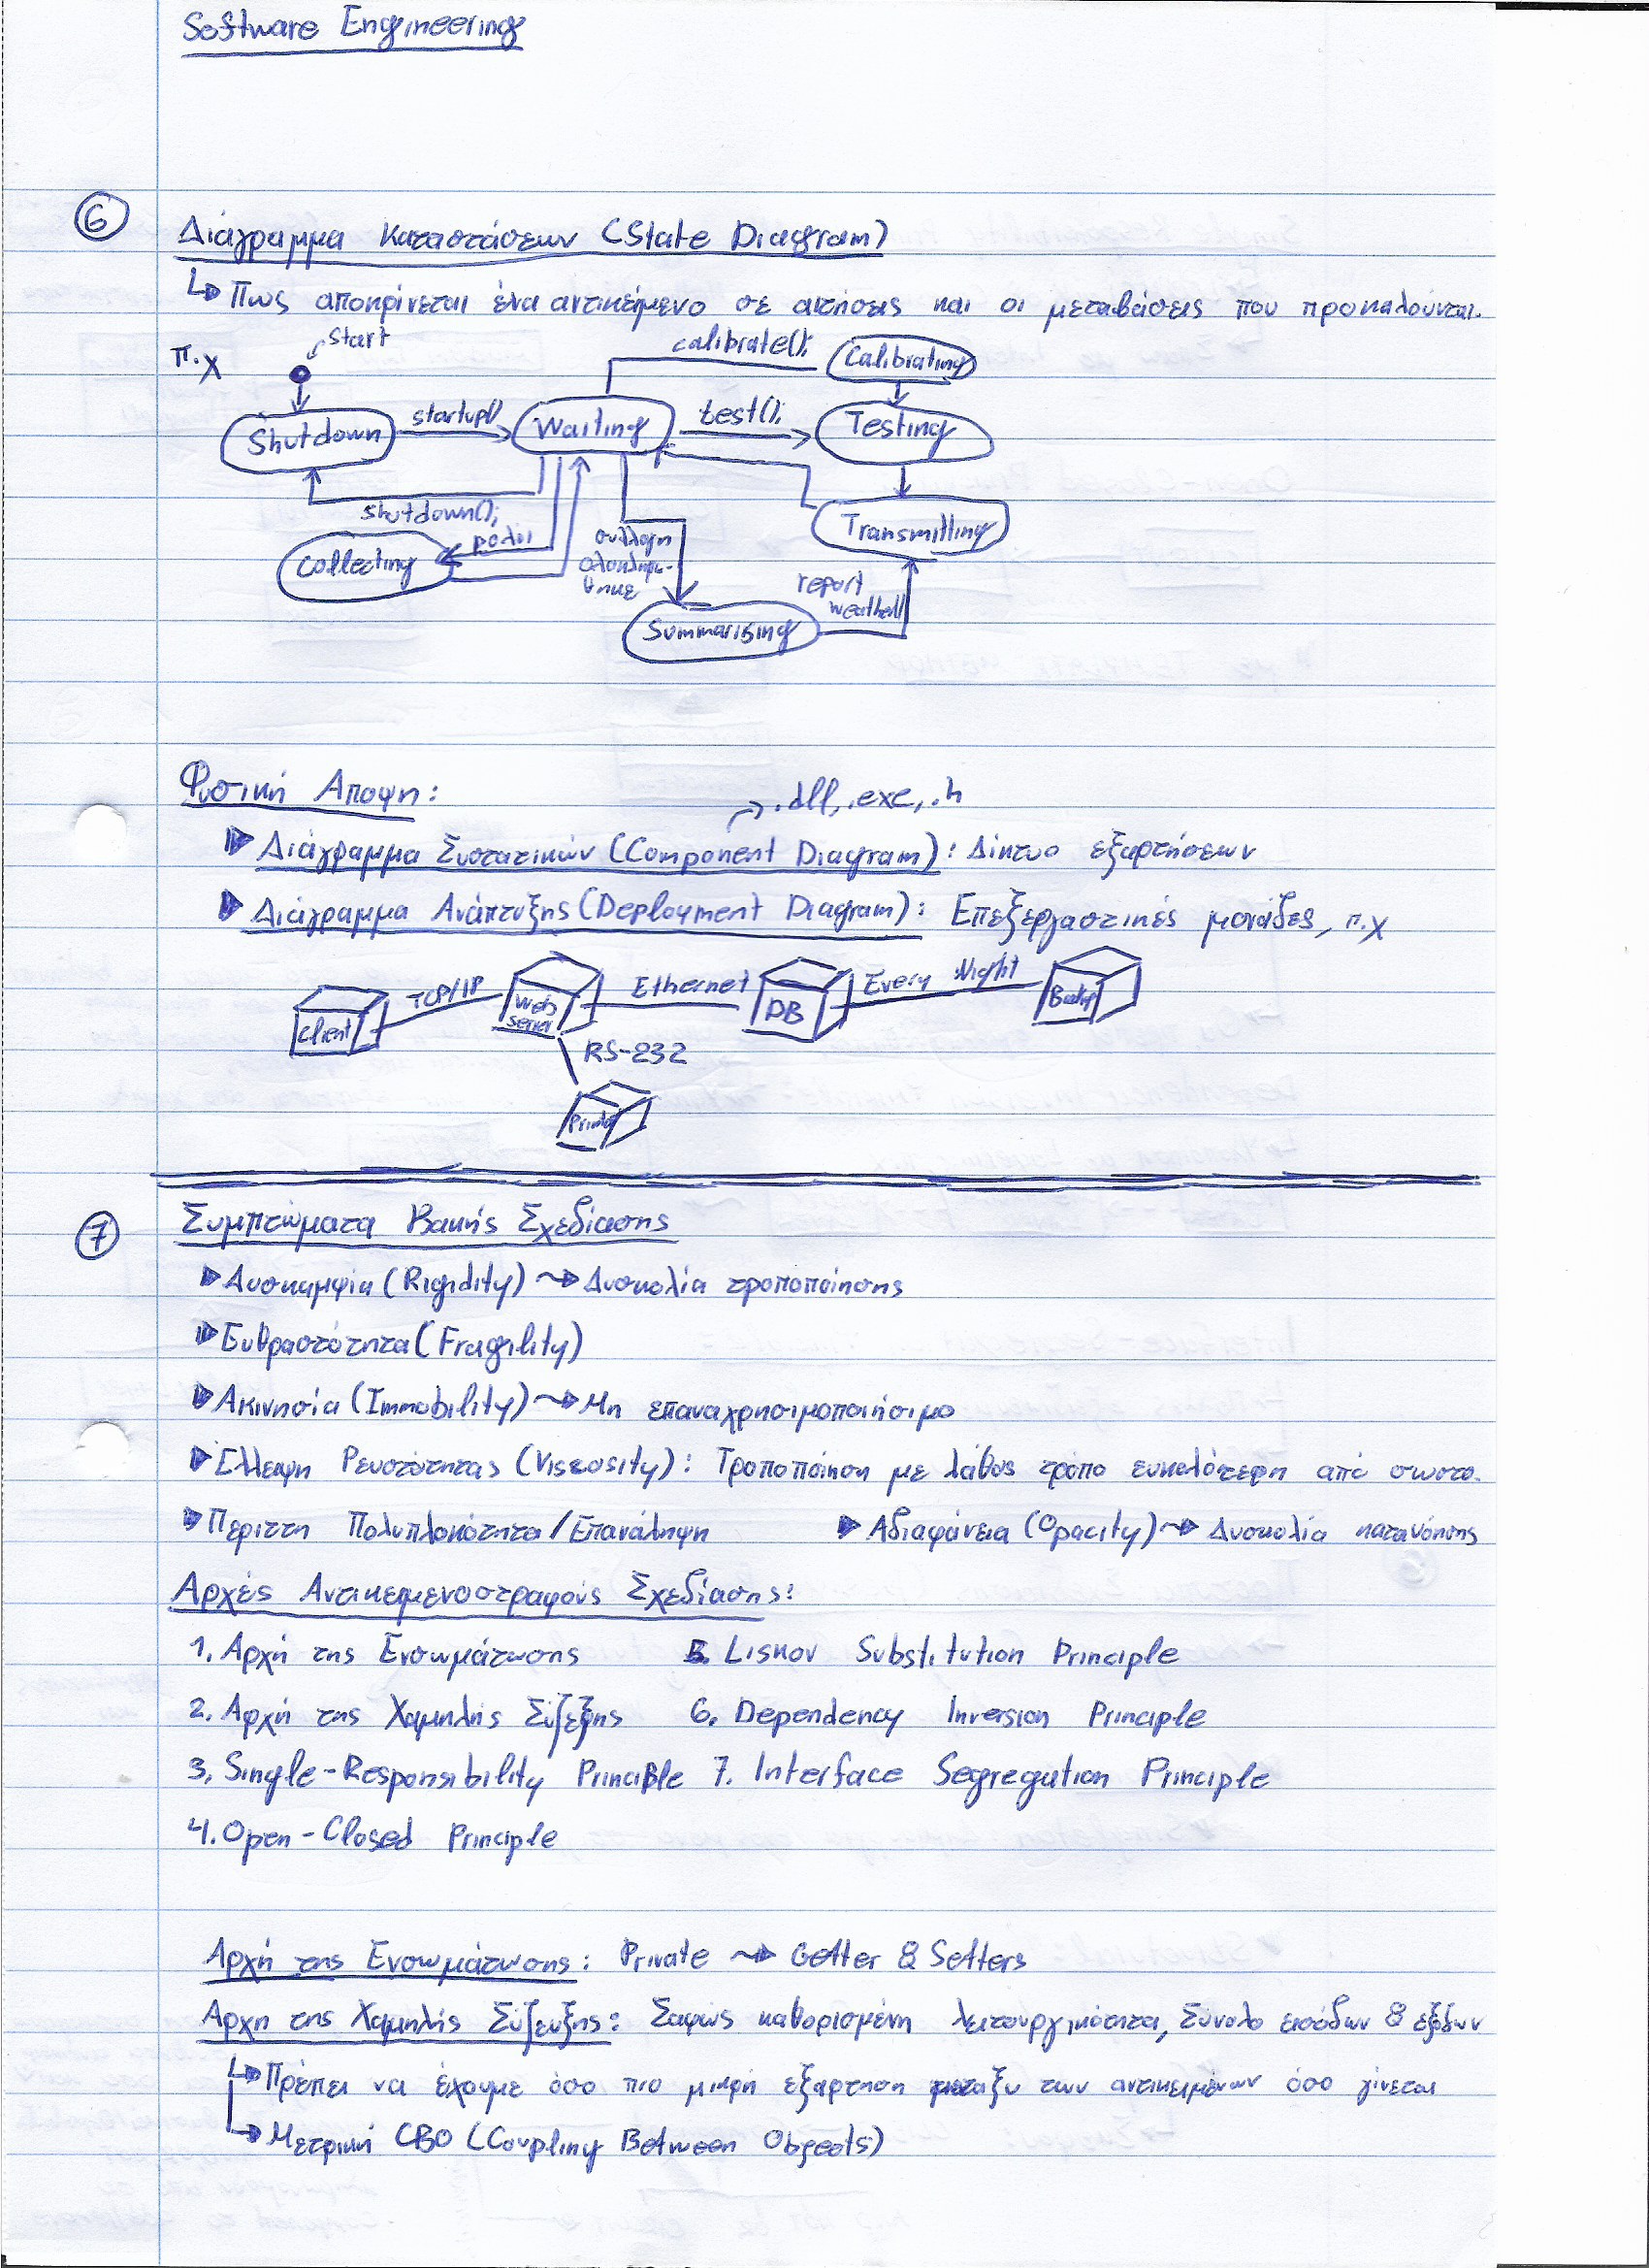 Software Engineering
6
Διάγραμμα Καταστάσεων (State Diagram)
Πως αποκρίνεται ένα αντικείμενο σε αιτήσεις και οι μεταβάσεις που προκαλούνται.
π.χ
start
calibrate();
Calibrating
Shutdown
startup()
Waiting
test();
Testing
shutdown();
Transmitting
Collecting
ρολόι
συλλογή
ολοκληρώ-
θηκε
report
weather()
Summarising
Φυσική Αποψη:
.dll, .exe, .h
Διάγραμμα Συστατικών (Component Diagram): Δίκτυο εξαρτήσεων
Διάγραμμα Ανάπτυξης (Deployment Diagram): Επεξεργαστικές μονάδες, π.χ
Client
TCP/IP
Web
server
Ethernet
DB
Every Night
Backup
RS-232
Printer
7
Συμπτώματα Κακής Σχεδίασης
Δυσκαμψία (Rigidity) Δυσκολία τροποποίησης
Ευθραστότητα (Fragility)
Ακινησία (Immobility) Μη επαναχρησιμοποιήσιμο
Έλλειψη Ρευστότητας (Viscosity): Τροποποίηση με λάθος τρόπο ευκολότερη από σωστο.
Περιττη Πολυπλοκότητα/Επανάληψη
Αδιαφάνεια (Opacity) Δυσκολία κατανόησης
Αρχές Αντικειμενοστραφούς Σχεδίασης:
1. Αρχή της Ενσωμάτωσης
5. Liskov Substitution Principle
2. Αρχή της Χαμηλής Σύζεξης
6. Dependency Inversion Principle
3. Single-Responsibility Principle
7. Interface Segregation Principle
4. Open-Closed Principle
Αρχή της Ενσωμάτωσης: Private Getter & Setters
Αρχη της Χαμηλής Σύζευξης: Σαφώς καθορισμένη λειτουργικότητα, Σύνολο εισόδων & εξόδων
Πρέπει να έχουμε όσο πιο μικρή εξάρτηση μεταξυ των αντικειμένων όσο γίνεται
Μετρική CBO (Coupling Between Objects)